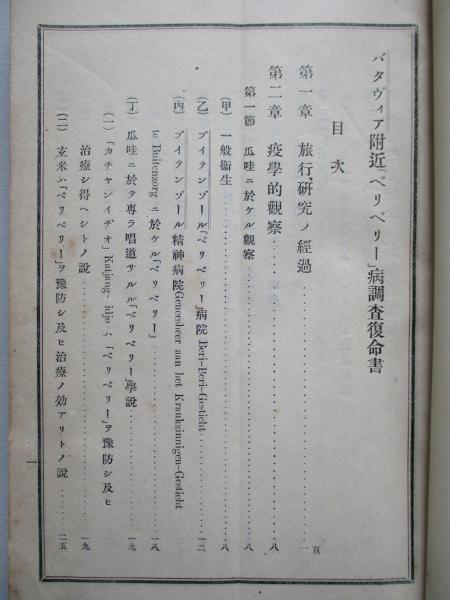 バタヴィア附近「ベリベリー」病調査復命書
目次
頁
第一章 旅行研究ノ經過……一
第二章 疫學的觀察……八
第一節 瓜哇ニ於ケル觀察……八
(甲) 一般衞生……八
(乙) ブイテンゾール「ベリベリー」病院 Beri-Beri-Gesticht……一二
(丙) ブイテンゾール精神病院 Geneesheer aan het Krankzinnigen-Gesticht
te Buitenzorg ニ於ケル「ベリベリー」……一八
(丁) 瓜哇ニ於テ專ラ唱道サルル「ベリベリー」學說……一九
(一) 「カチヤンイヂオ」Katjang-idjo ハ「ベリベリー」ヲ豫防シ及ヒ
治療シ得ヘシトノ說……一九
(二) 玄米ハ「ベリベリー」ヲ豫防シ及ヒ治療ノ効アリトノ說……二五
一